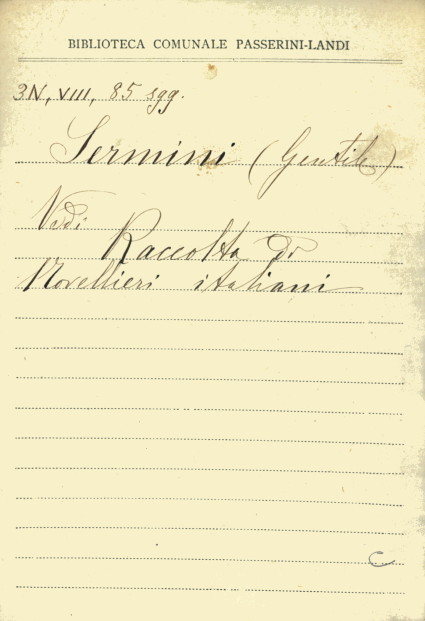 BIBLIOTECA COMUNALE PASSERINI-LANDI
3N, VIII, 85 sgg.
Sermini (Gentile)
Vedi
Raccolta di
Novellieri italiani
C